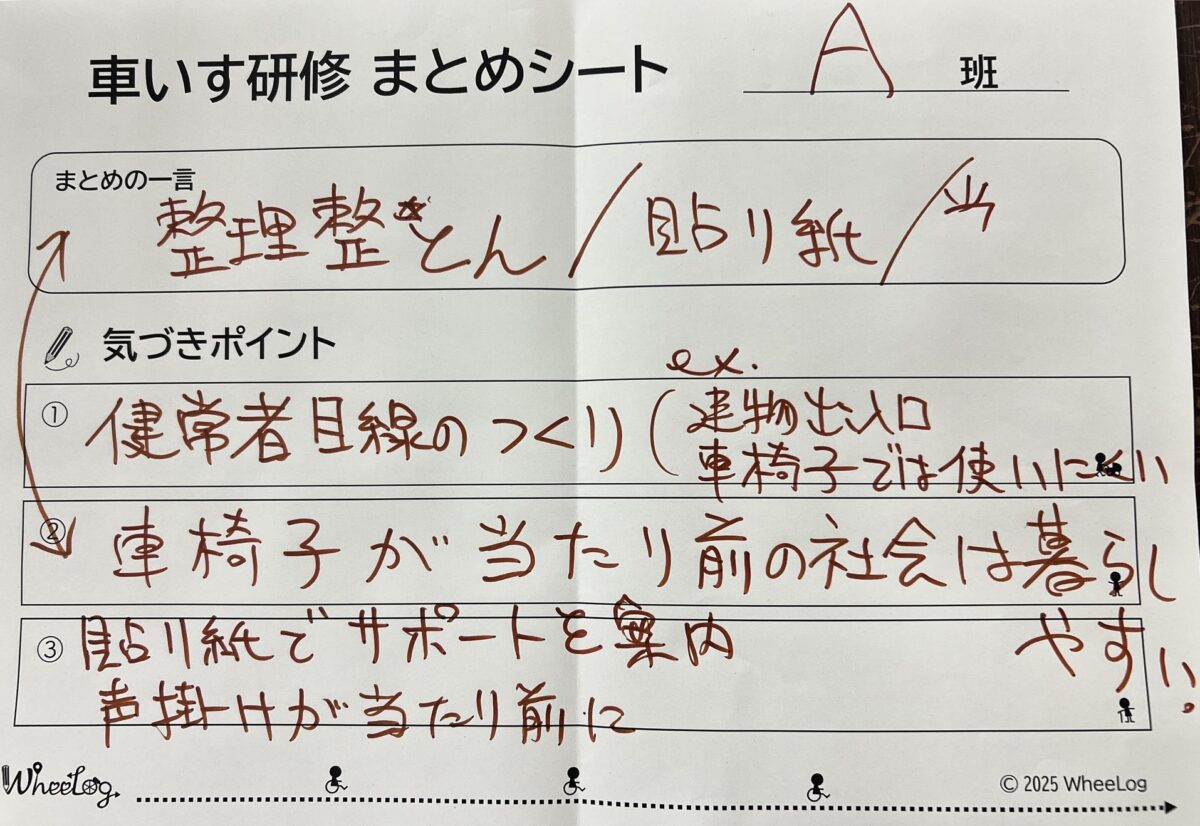 車いす研修 まとめシート A 班
まとめの一言
整理整とん/貼り紙/当
気づきポイント
ex.
① 健常者目線のつくり(建物出入口
車椅子では使いにくい
② 車椅子が当たり前の社会は暮らし
やすい。
③ 貼り紙でサポートを案内
声掛けが当たり前に
WheeLog
© 2025 WheeLog